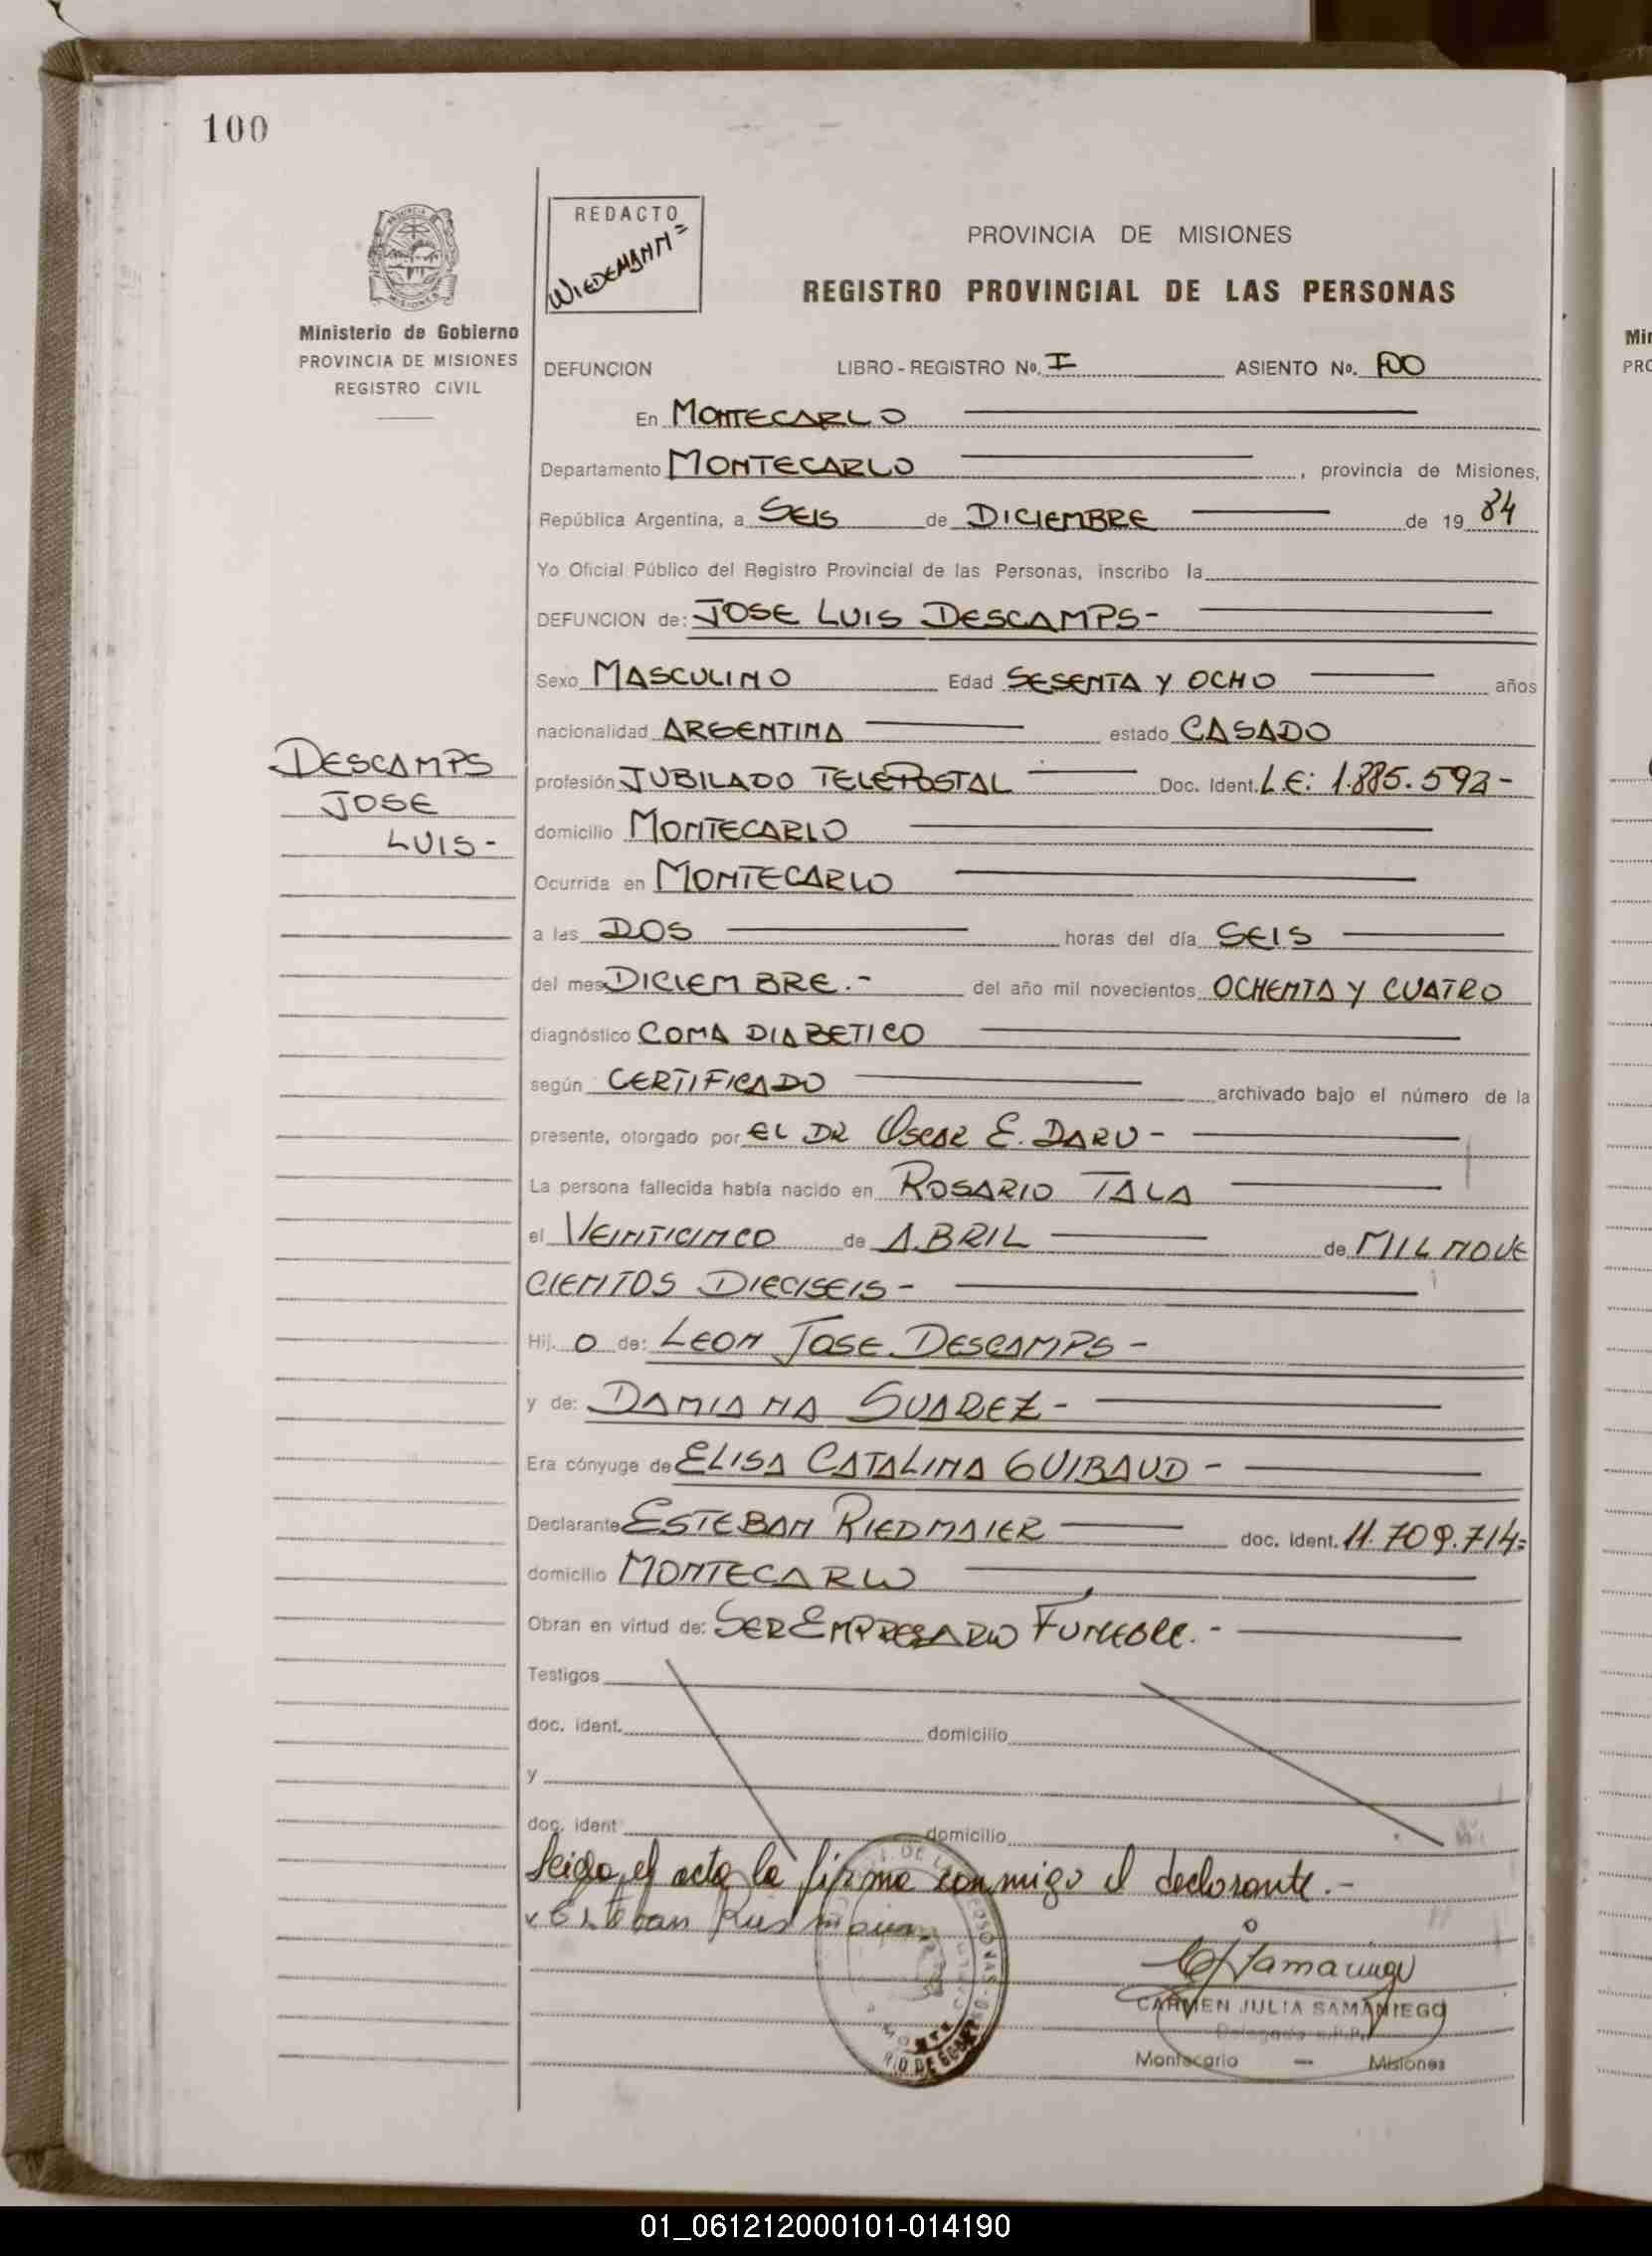 100
REDACTO
WIEDEMANN=
PROVINCIA DE MISIONES
REGISTRO PROVINCIAL DE LAS PERSONAS
Ministerio de Gobierno
PROVINCIA DE MISIONES
REGISTRO CIVIL
DEFUNCION LIBRO - REGISTRO No. I ASIENTO No. 100
En MONTECARLO
Departamento MONTECARLO , provincia de Misiones,
República Argentina, a SEIS de DICIEMBRE de 19 84
Yo Oficial Público del Registro Provincial de las Personas, inscribo la
DEFUNCION de: JOSE LUIS DESCAMPS-
Sexo MASCULINO Edad SESENTA Y OCHO años
nacionalidad ARGENTINA estado CASADO
DESCAMPS
JOSE
LUIS-
profesión JUBILADO TELEPOSTAL Doc. Ident. L.E: 1.885.592-
domicilio MONTECARLO
Ocurrida en MONTECARLO
a las DOS horas del día SEIS
del mes DICIEMBRE.- del año mil novecientos OCHENTA Y CUATRO
diagnóstico COMA DIABETICO
según CERTIFICADO archivado bajo el número de la
presente, otorgado por EL DR OSCAR E. DARU-
La persona fallecida había nacido en ROSARIO TALA
el VEINTICINCO de ABRIL de MIL NOVE
CIENTOS DIECISEIS-
Hij. O de: LEON JOSE DESCAMPS-
y de: DAMIANA SUAREZ-
Era cónyuge de ELISA CATALINA GUIBAUD-
Declarante ESTEBAN RIEDMAIER doc. ident. 11.709.714=
domicilio MONTECARLO
Obran en virtud de: SER EMPRESARIO FUNEBRE.-
Testigos
doc. ident. domicilio
y
doc. ident domicilio
Leida el acta la firma conmigo el declarante.-
x Esteban
CARMEN JULIA SAMANIEGO
Delegada R.P.P.
Montecarlo — Misiones
01_061212000101-014190